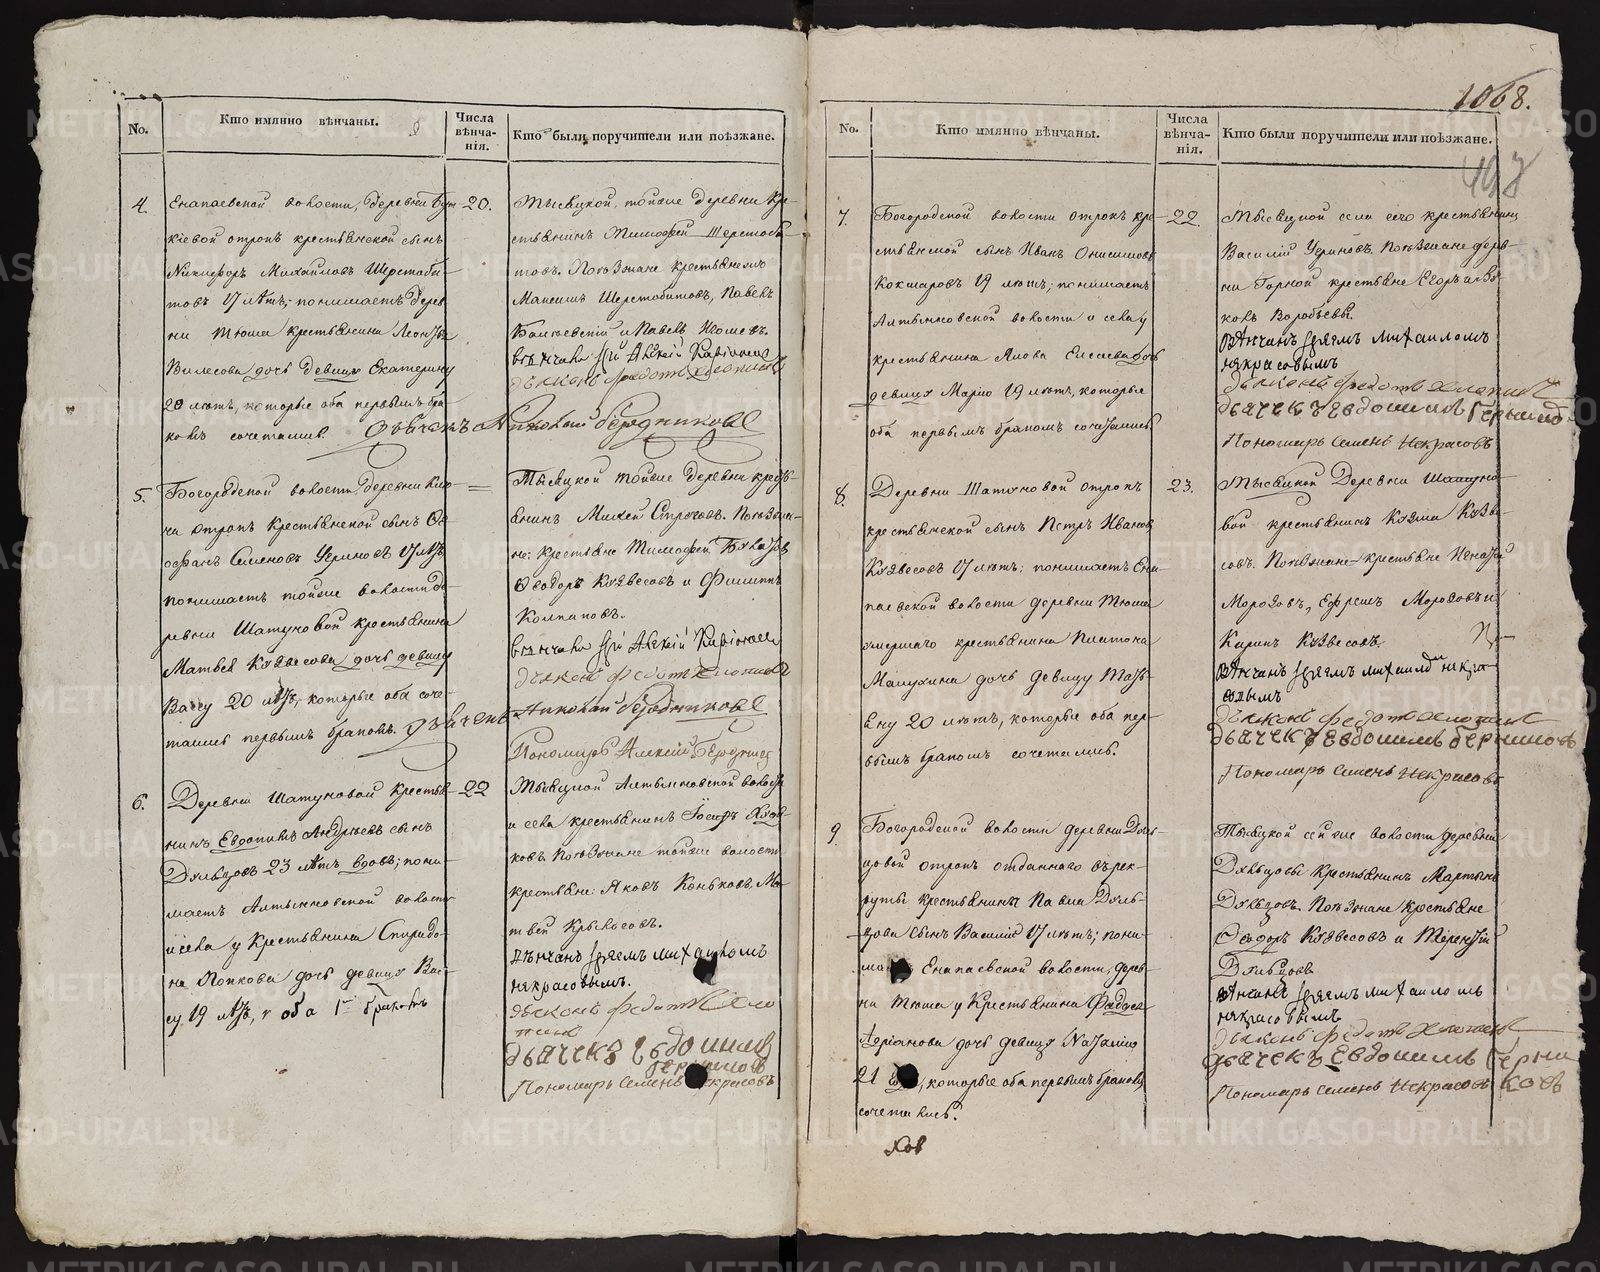 1068.
498
No.
Кто имянно вѣнчаны.
Числа вѣнча-
нія.
Кто были поручители или поѣзжане.
4.
Енапаевской волости, деревни Бут-
кіевой отрокъ крестьянской сынъ
Никифоръ Михайловъ Шерстоби-
товъ 17 лѣтъ; понимаетъ дерев
ни Тюша крестьянина Леонтья
Вилесова дочь девицу Екатерину
20 лѣтъ, которые оба первымъ бра-
комъ сочетались.
20.
Тысяцкой, тойже деревни кре-
стьянинъ Тимофей Шерстоби-
товъ. Поѣзжане крестьяне
Максимъ Шерстобитовъ, Павелъ
и Павелъ
вѣнчалъ Алексій
дьяконъ Федотъ Хлопинъ
дьячекъ Николай Бередниковъ
5.
Богородской волости, деревни
отрокъ крестьянской сынъ
Семеновъ 17 лѣтъ
понимаетъ тойже волости де-
ревни Шатуновой крестьянина
Матвея Кузвесова дочь девицу
Вассу 20 лѣтъ, которые оба соче-
тались первымъ бракомъ.
Тысяцкой тойже деревни кресть-
янинъ Михей Строчевъ. Поѣзжа-
не: крестьяне Тимофей
Ѳеодоръ Кузвесовъ и Филиппъ
Колпаковъ.
вѣнчалъ Алексій
дьяконъ Федотъ Хлопинъ
дьячекъ Николай Бередниковъ
Пономарь Алексій
6.
Деревни Шатуновой крестья
нинъ Евдокимъ Андреевъ сынъ
Дульцовъ 23 лѣтъ вдовъ; пони-
маетъ Алтынновской волости
и села у крестьянина Спиридо-
на Попкова дочь девицу Вас-
су 19 лѣтъ, оба 1 бракомъ
22
Тысяцкой Алтынновской волости
и села крестьянинъ Іосифъ
ковъ. Поѣзжане тойже волости
крестьяне: Яковъ Коньковъ, Ма-
твей Крылосовъ.
вѣнчанъ іереемъ михаиломъ
некрасовымъ.
дьяконъ федотъ Хло
пинъ
дьячекъ Евдокимъ
Берниковъ
Пономарь Семенъ Некрасовъ
No.
Кто имянно вѣнчаны.
Числа вѣнча-
нія.
Кто были поручители или поѣзжане.
7.
Богородской волости отрокъ кре-
стьянской сынъ Иванъ Онисимовъ
Кокшаровъ 19 лѣтъ; понимаетъ
Алтынновской волости и села у
крестьянина Якова Елисеева дочь
девицу Марію 19 лѣтъ, которые
оба первымъ бракомъ сочетались
22.
Тысяцкой села сего крестьянинъ
Василій Поѣзжане дерев-
ни Горной крестьяне Егоръ и Яко-
ковъ Воробьевы.
вѣнчанъ іереемъ михаиломъ
некрасовымъ
дьяконъ федотъ Хлопинъ
дьячекъ Евдокимъ Берников
Пономарь Семенъ Некрасовъ
8.
Деревни Шатуновой отрокъ
крестьянской сынъ Петръ Ивановъ
Кузвесовъ 17 лѣтъ; понимаетъ Ена-
паевской волости деревни Тюша
умершаго крестьянина Платона
Мапухина дочь девицу Тать-
яну 20 лѣтъ, которые оба пер-
вымъ бракомъ сочетались.
23.
Тысяцкой Деревни Шатуно-
вой крестьянинъ Кузма Кузве-
совъ. Поѣзжане крестьяне Игнатій
Морозовъ, Ефремъ Морозовъ и
Карпъ Кузвесовъ.
вѣнчанъ іереемъ михаиломъ некра-
совымъ
дьяконъ федотъ Хлопинъ
дьячекъ Евдокимъ Берниковъ
Пономарь Семенъ Некрасовъ
9.
Богородской волости деревни Дуль-
цовой отрокъ отданнаго въ рек-
руты крестьянина Павла Дуль-
цова сынъ Василій 17 лѣтъ; пони-
ма Енапаевской волости, дерев-
ни Тюша у Крестьянина Фадея
Адріанова дочь девицу Наталію
21 , которые оба первымъ бракомъ
сочетались.
Тысяцкой сей же волости деревни
Дульцовы крестьянинъ Мартынъ
Дульцовъ. Поѣзжане крестьяне
Ѳеодоръ Кузвесовъ и Терентій
Дульцовъ
вѣнчанъ іереемъ михаиломъ
некрасовымъ
дьяконъ федотъ Хлопинъ
дьячекъ Евдокимъ Берни
ковъ
Пономарь Семенъ Некрасовъ
ков
METRIKI.GASO-URAL.RU